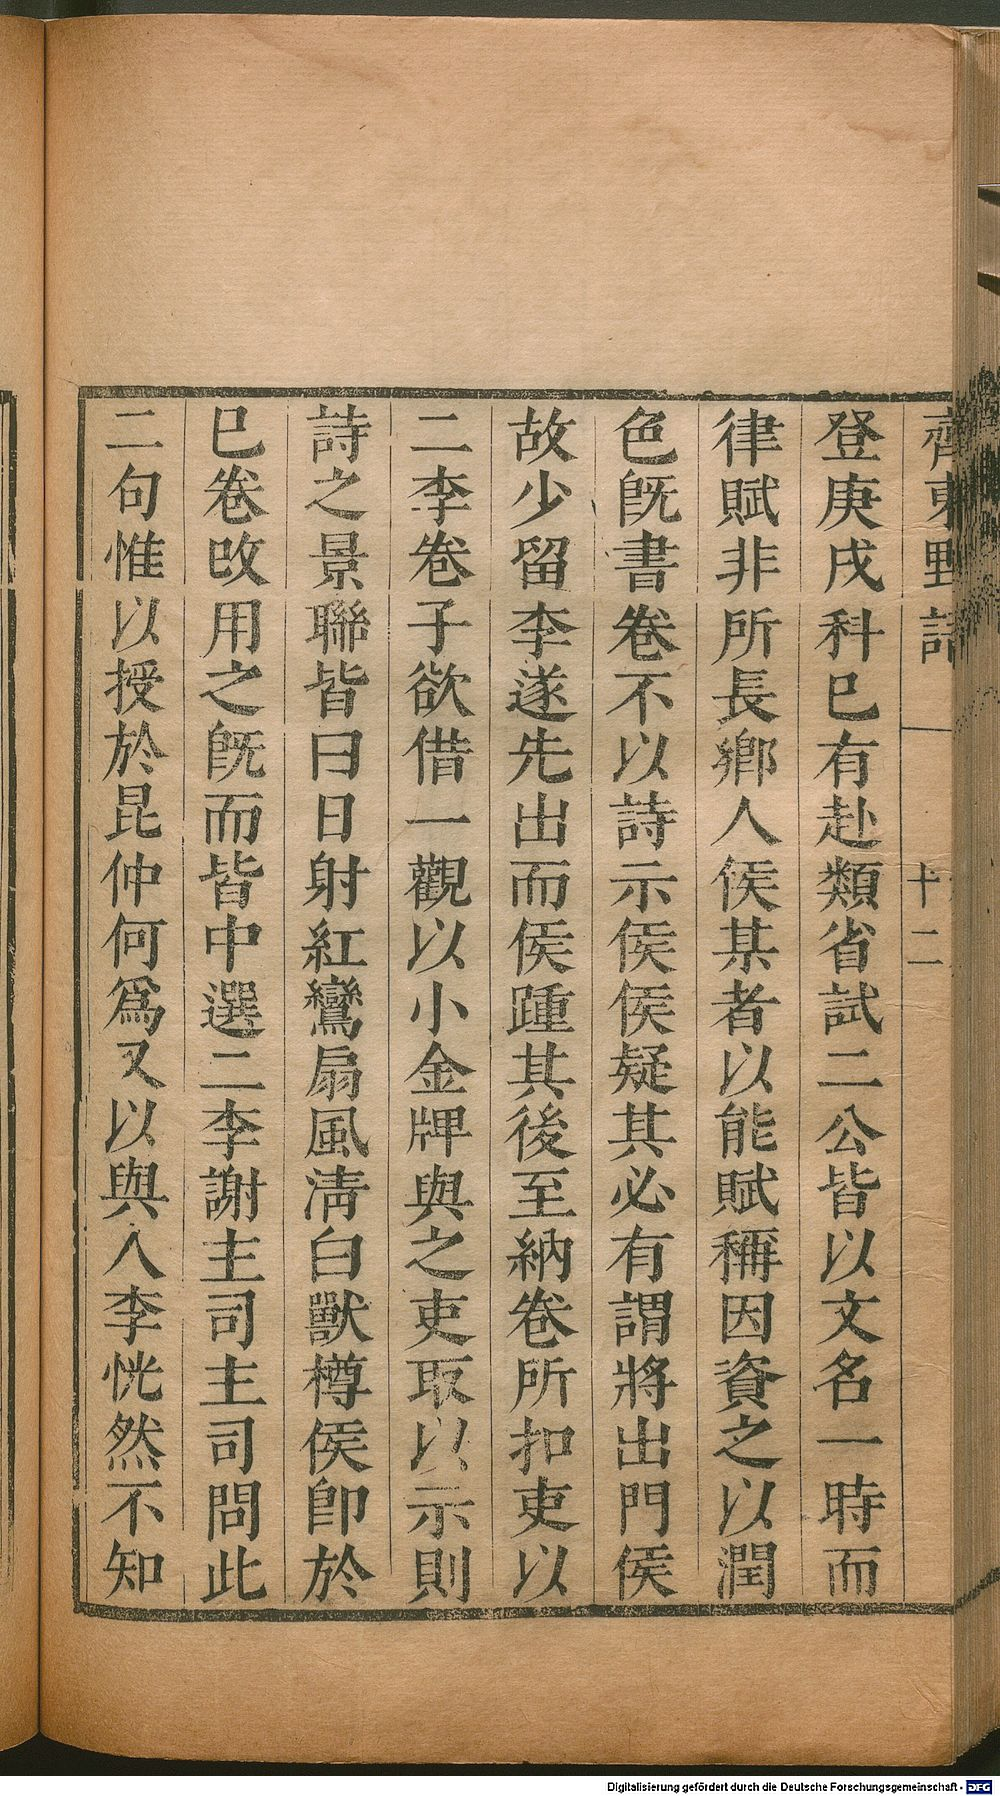 齊東野語
十二
登庚戌科巳有赴類省試二公皆以文名一時而
律賦非所長鄉人侯某者以能賦稱因資之以潤
色旣書卷不以詩示侯侯疑其必有謂將出門侯
故少留李遂先出而侯踵其後至納卷所扣吏以
二李卷子欲借一觀以小金牌與之吏取以示則
詩之景聯皆曰日射紅鸞扇風淸白獸樽侯卽於
巳卷改用之旣而皆中選二李謝主司主司問此
二句惟以授於昆仲何爲又以與人李恍然不知
Digitalisierung gefördert durch die Deutsche Forschungsgemeinschaft - DFG